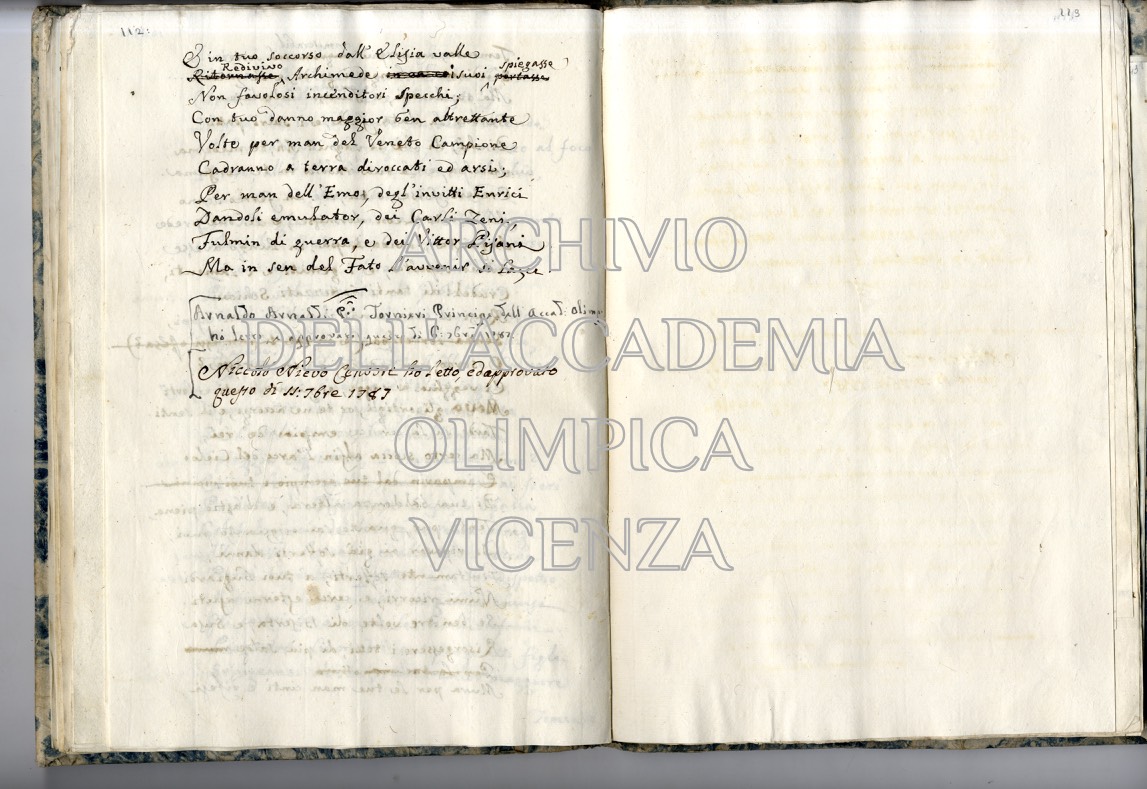 112:
E in tuo soccorso dall' Elisia valle
Redivivo spiegasse
Ritornasse Archimede i suoi portasse
Non favolosi incenditori specchi;
Con tuo danno maggior ben altrettante
Volte per man del Veneto Campione
Cadranno a terra diroccati ed arsi;
Per man dell' Emo, degl' invitti Enrici
Dandoli emulator, dei Carli Zeni,
Fulmin di guerra, e dei Vittor Pisani
Ma in sen del Fato l'avvenir si
Arnaldo Arnaldi Tornieri Principe dell' Accad: Olim
ho letto e approvato questo dì
Niccolò Nievo Censore ho letto, ed approvato
questo dì 11: 7bre 1787
113
ARCHIVIO
DELL'ACCADEMIA
OLIMPICA
VICENZA